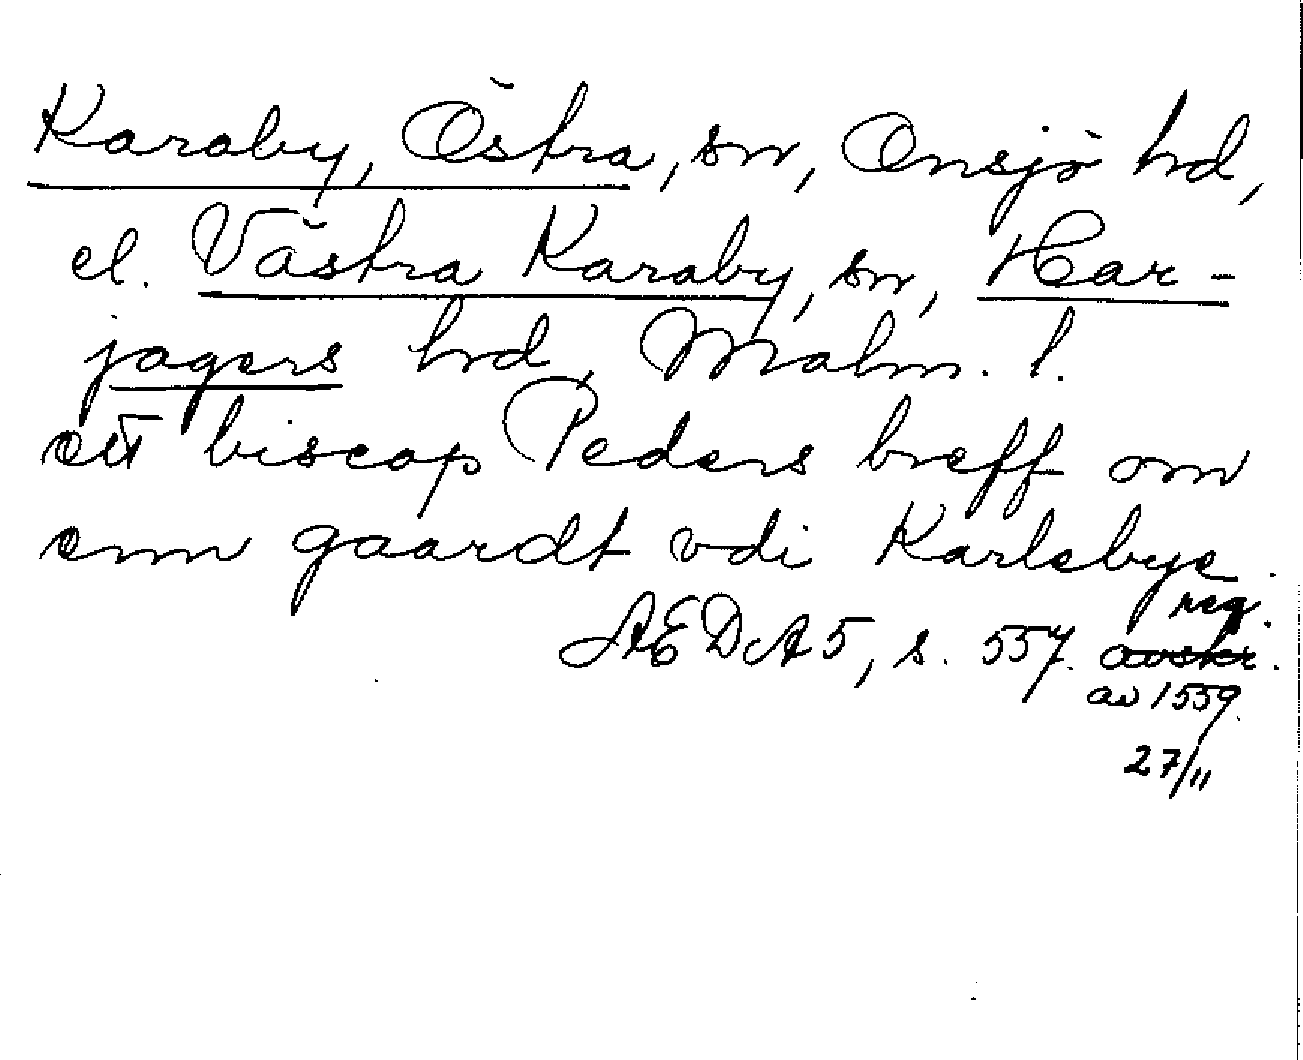 Karaby, Östra, sn, Onsjö hd,
el. Västra Karaby, sn, Har-
jagers hd, Malm. l.
ett biscop Peders breff om
enn gaardt vdi Karlebye.
reg.
ÆDA 5, s. 557. avskr.
av 1559.
27/11